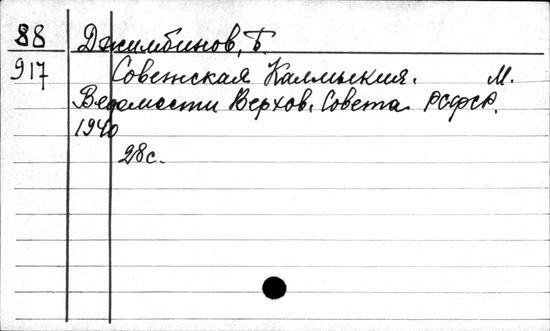 88 Джимбинов, Б.
917 Советская Калмыкия. М.
Ведомости Верхов. Совета РСФСР.
1940
28с.